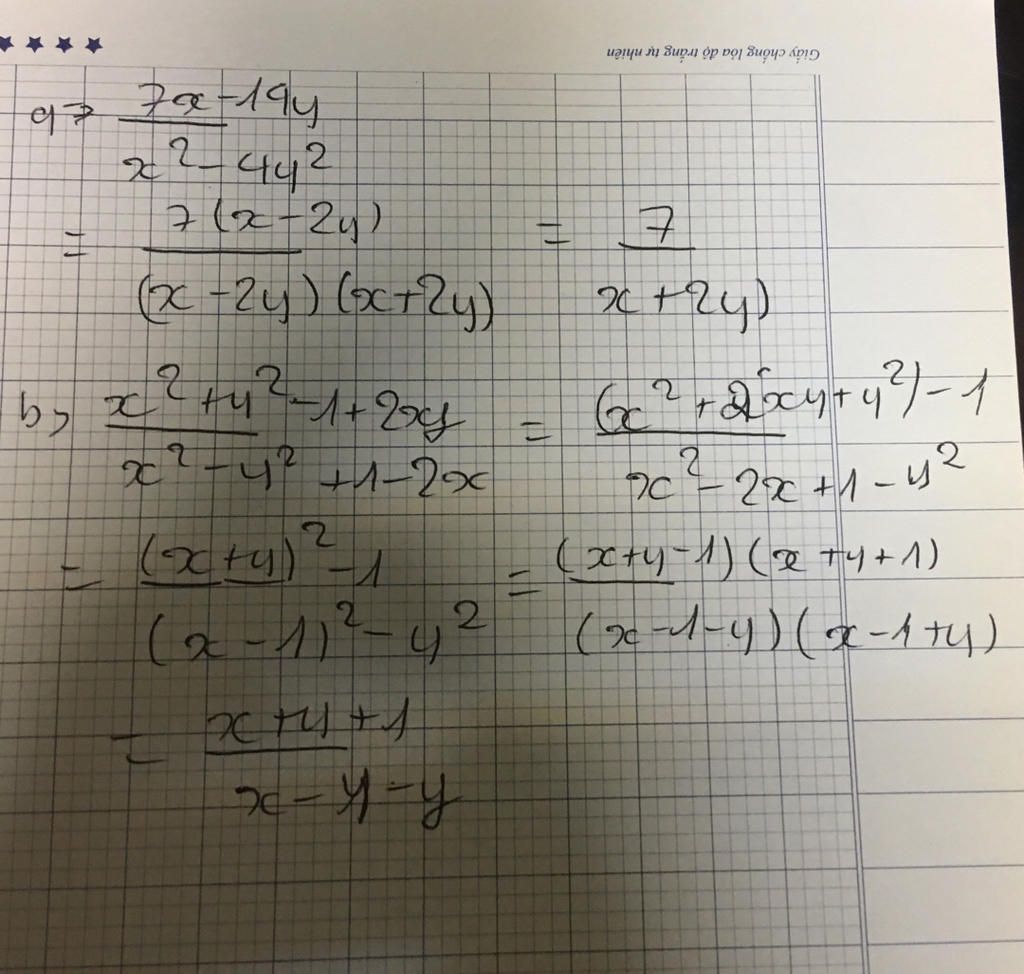 Giấy chống lóa độ trắng tự nhiên
a> 7x-14y / x²-4y²
= 7(x-2y) / (x-2y)(x+2y) = 7 / x+2y)
b> x²+y²-1+2xy / x²-y²+1-2x = (x²+2xy+y²)-1 / x²-2x+1-y²
= (x+y)²-1 / (x-1)²-y² = (x+y-1)(x+y+1) / (x-1-y)(x-1+y)
= x+y+1 / x-y-y